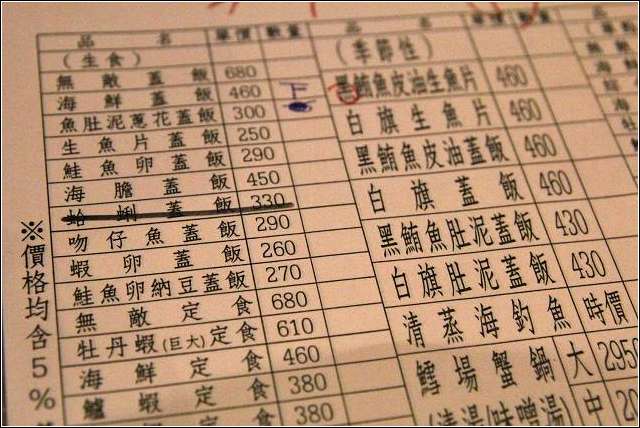 品 名 單價 數量
(生食)
無敵蓋飯 680
海鮮蓋飯 460
魚肚泥蔥花蓋飯 300
生魚片蓋飯 250
鮭魚卵蓋飯 290
海膽蓋飯 450
蛤蜊蓋飯 330
吻仔魚蓋飯 290
蝦卵蓋飯 260
鮭魚卵納豆蓋飯 270
無敵定食 680
牡丹蝦(巨大)定食 610
海鮮定食 460
鱸蝦定食 380
380
※價格均含5%
品 名 單價 數量
(季節性)
黑鮪魚皮油生魚片 460
白旗生魚片 460
黑鮪魚皮油蓋飯 460
白旗蓋飯 460
黑鮪魚肚泥蓋飯 430
白旗肚泥蓋飯 430
清蒸海釣魚 時價
鱈場蟹鍋 大 2950
(清湯/味噌湯) 中
品